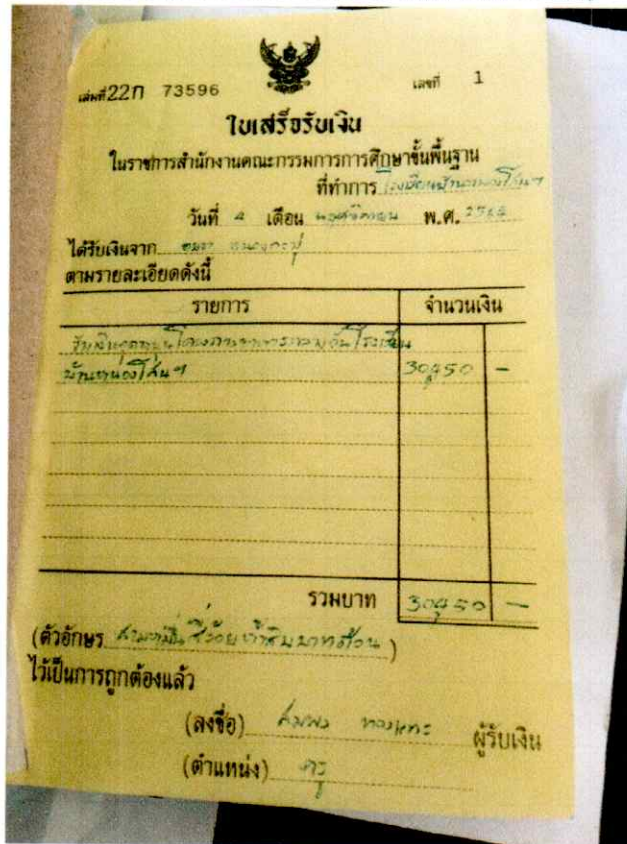 เล่มที่ 22ก 73596 เลขที่ 1
ใบเสร็จรับเงิน
ในราชการสำนักงานคณะกรรมการการศึกษาขั้นพื้นฐาน
ที่ทำการ โรงเรียนบ้านหนองโสนฯ
วันที่ 4 เดือน พฤศจิกายน พ.ศ. 2564
ได้รับเงินจาก อบต.
ตามรายละเอียดดังนี้
รายการ จำนวนเงิน
รับเงินอุดหนุนโครงการอาหารกลางวันโรงเรียน
บ้านหนองโสนฯ 30,450 -
รวมบาท 30,450 -
(ตัวอักษร สามหมื่นสี่ร้อยห้าสิบบาทถ้วน)
ไว้เป็นการถูกต้องแล้ว
(ลงชื่อ) ผู้รับเงิน
(ตำแหน่ง) ครู